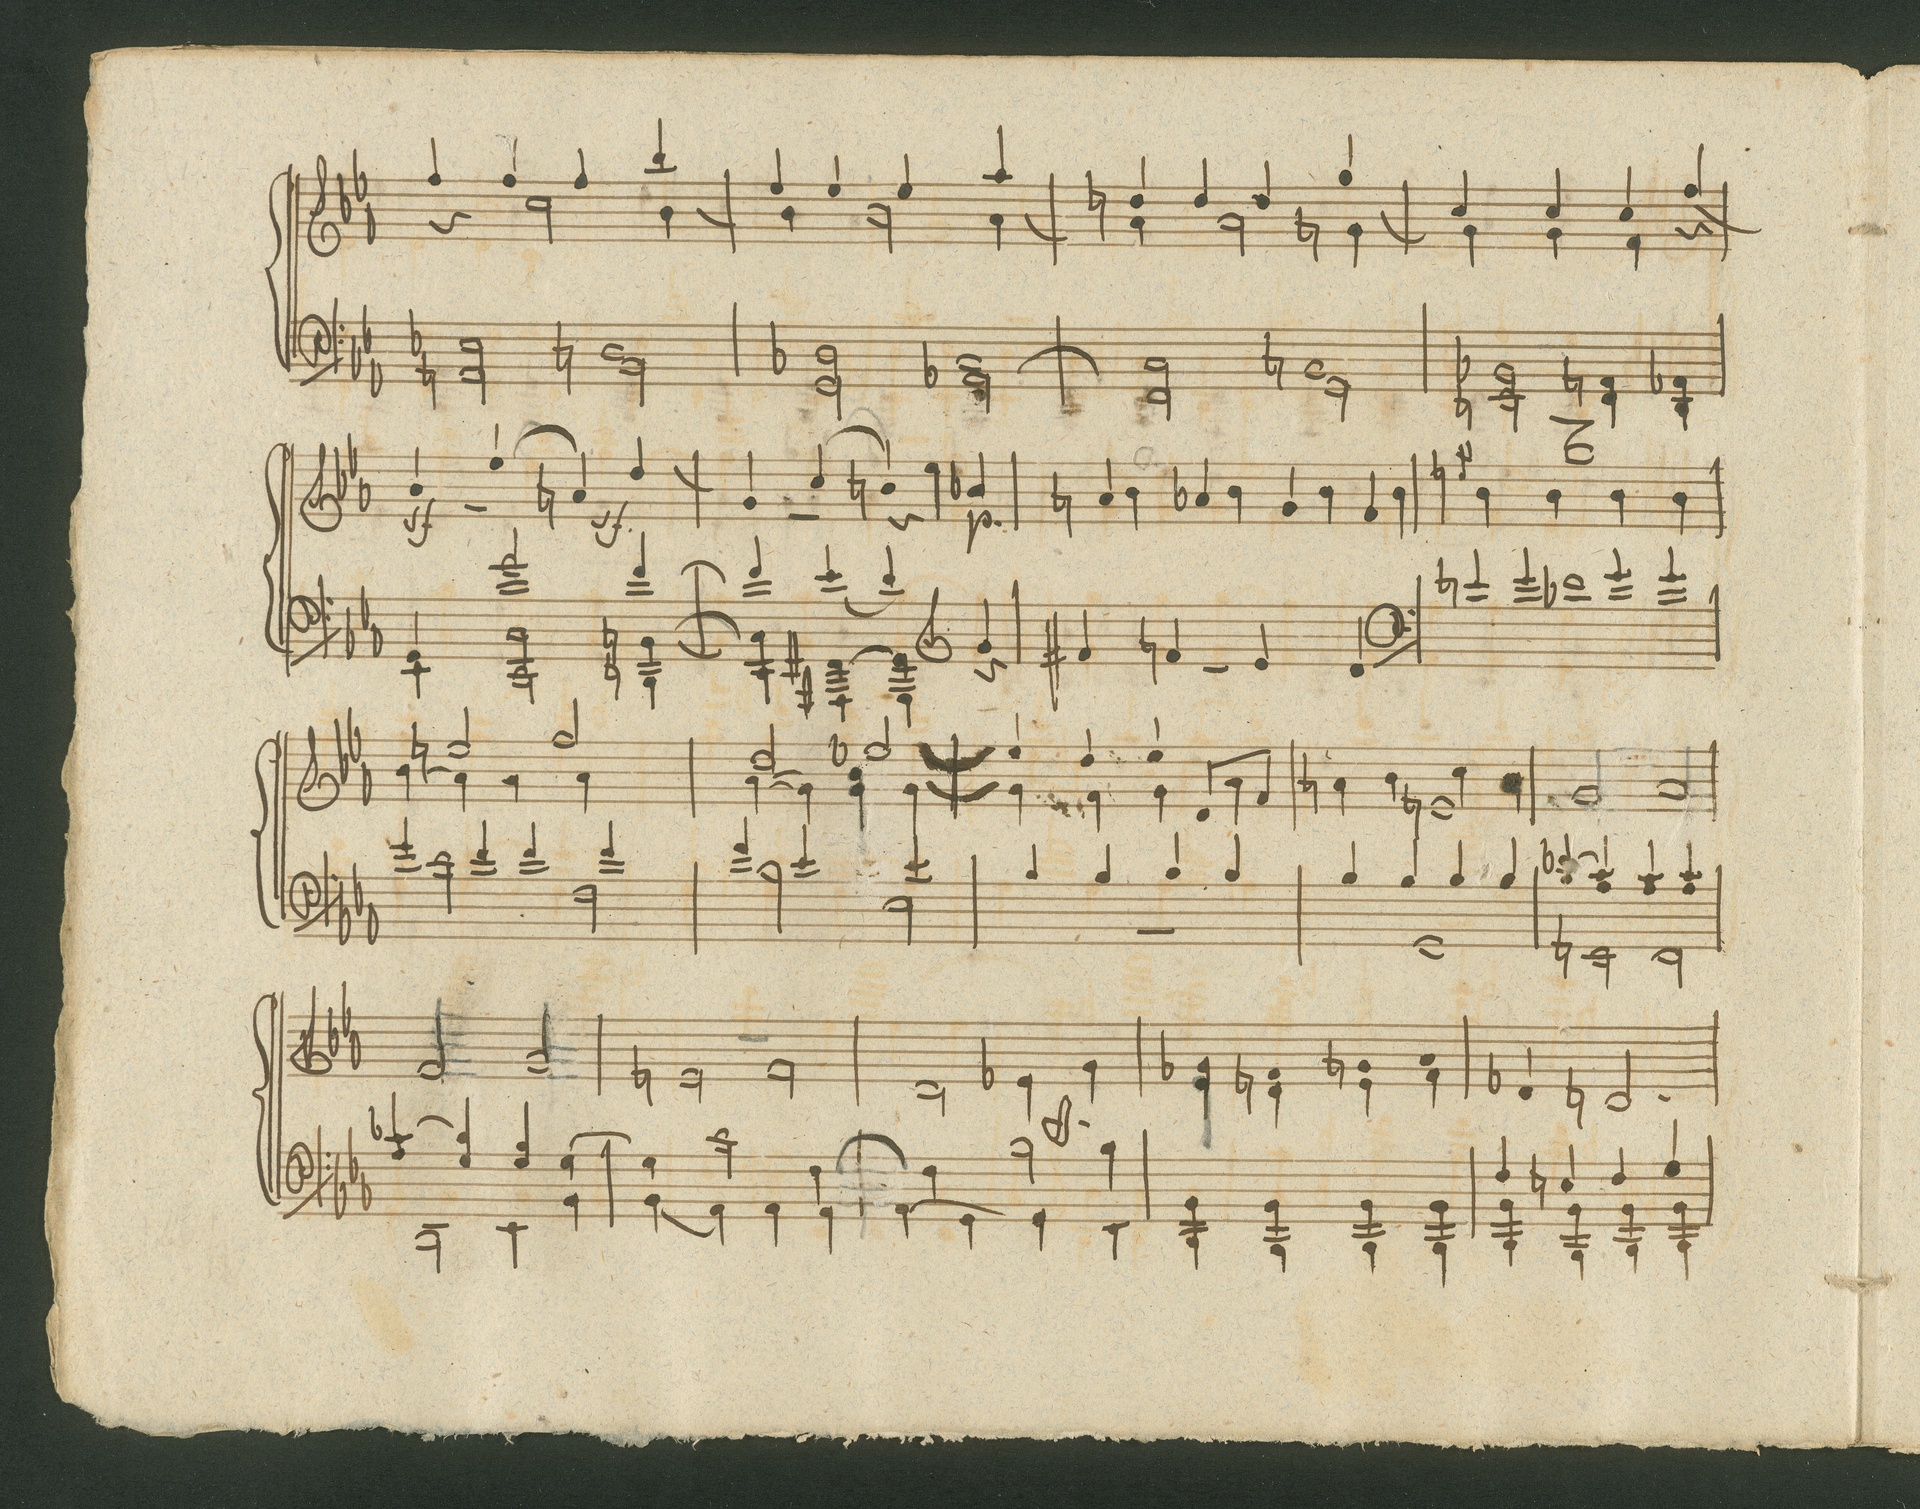 sf sf. p.